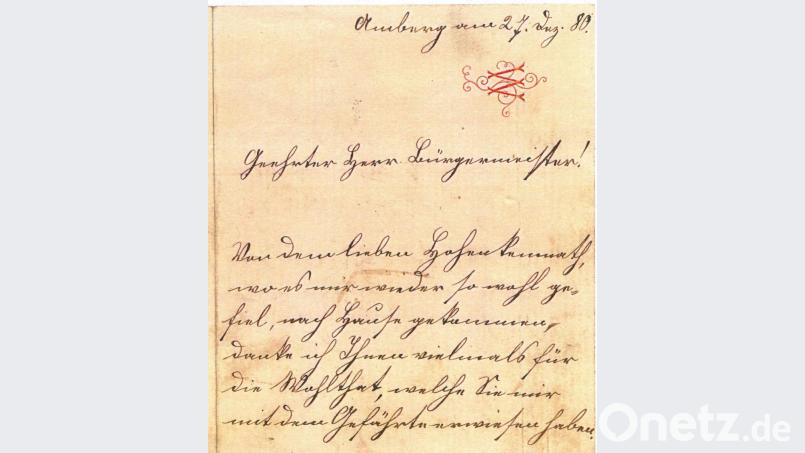 Amberg am 27. Dez. 80.
W
Geehrter Herr Bürgermeister!
Von dem lieben Hohenkemnath,
wo es mir wieder so wohl ge-
fiel, nach Hause gekommen,
danke ich Ihnen vielmals für
die Wohlthat, welche Sie mir
mit dem Gefährte erwiesen haben.
Onetz.de